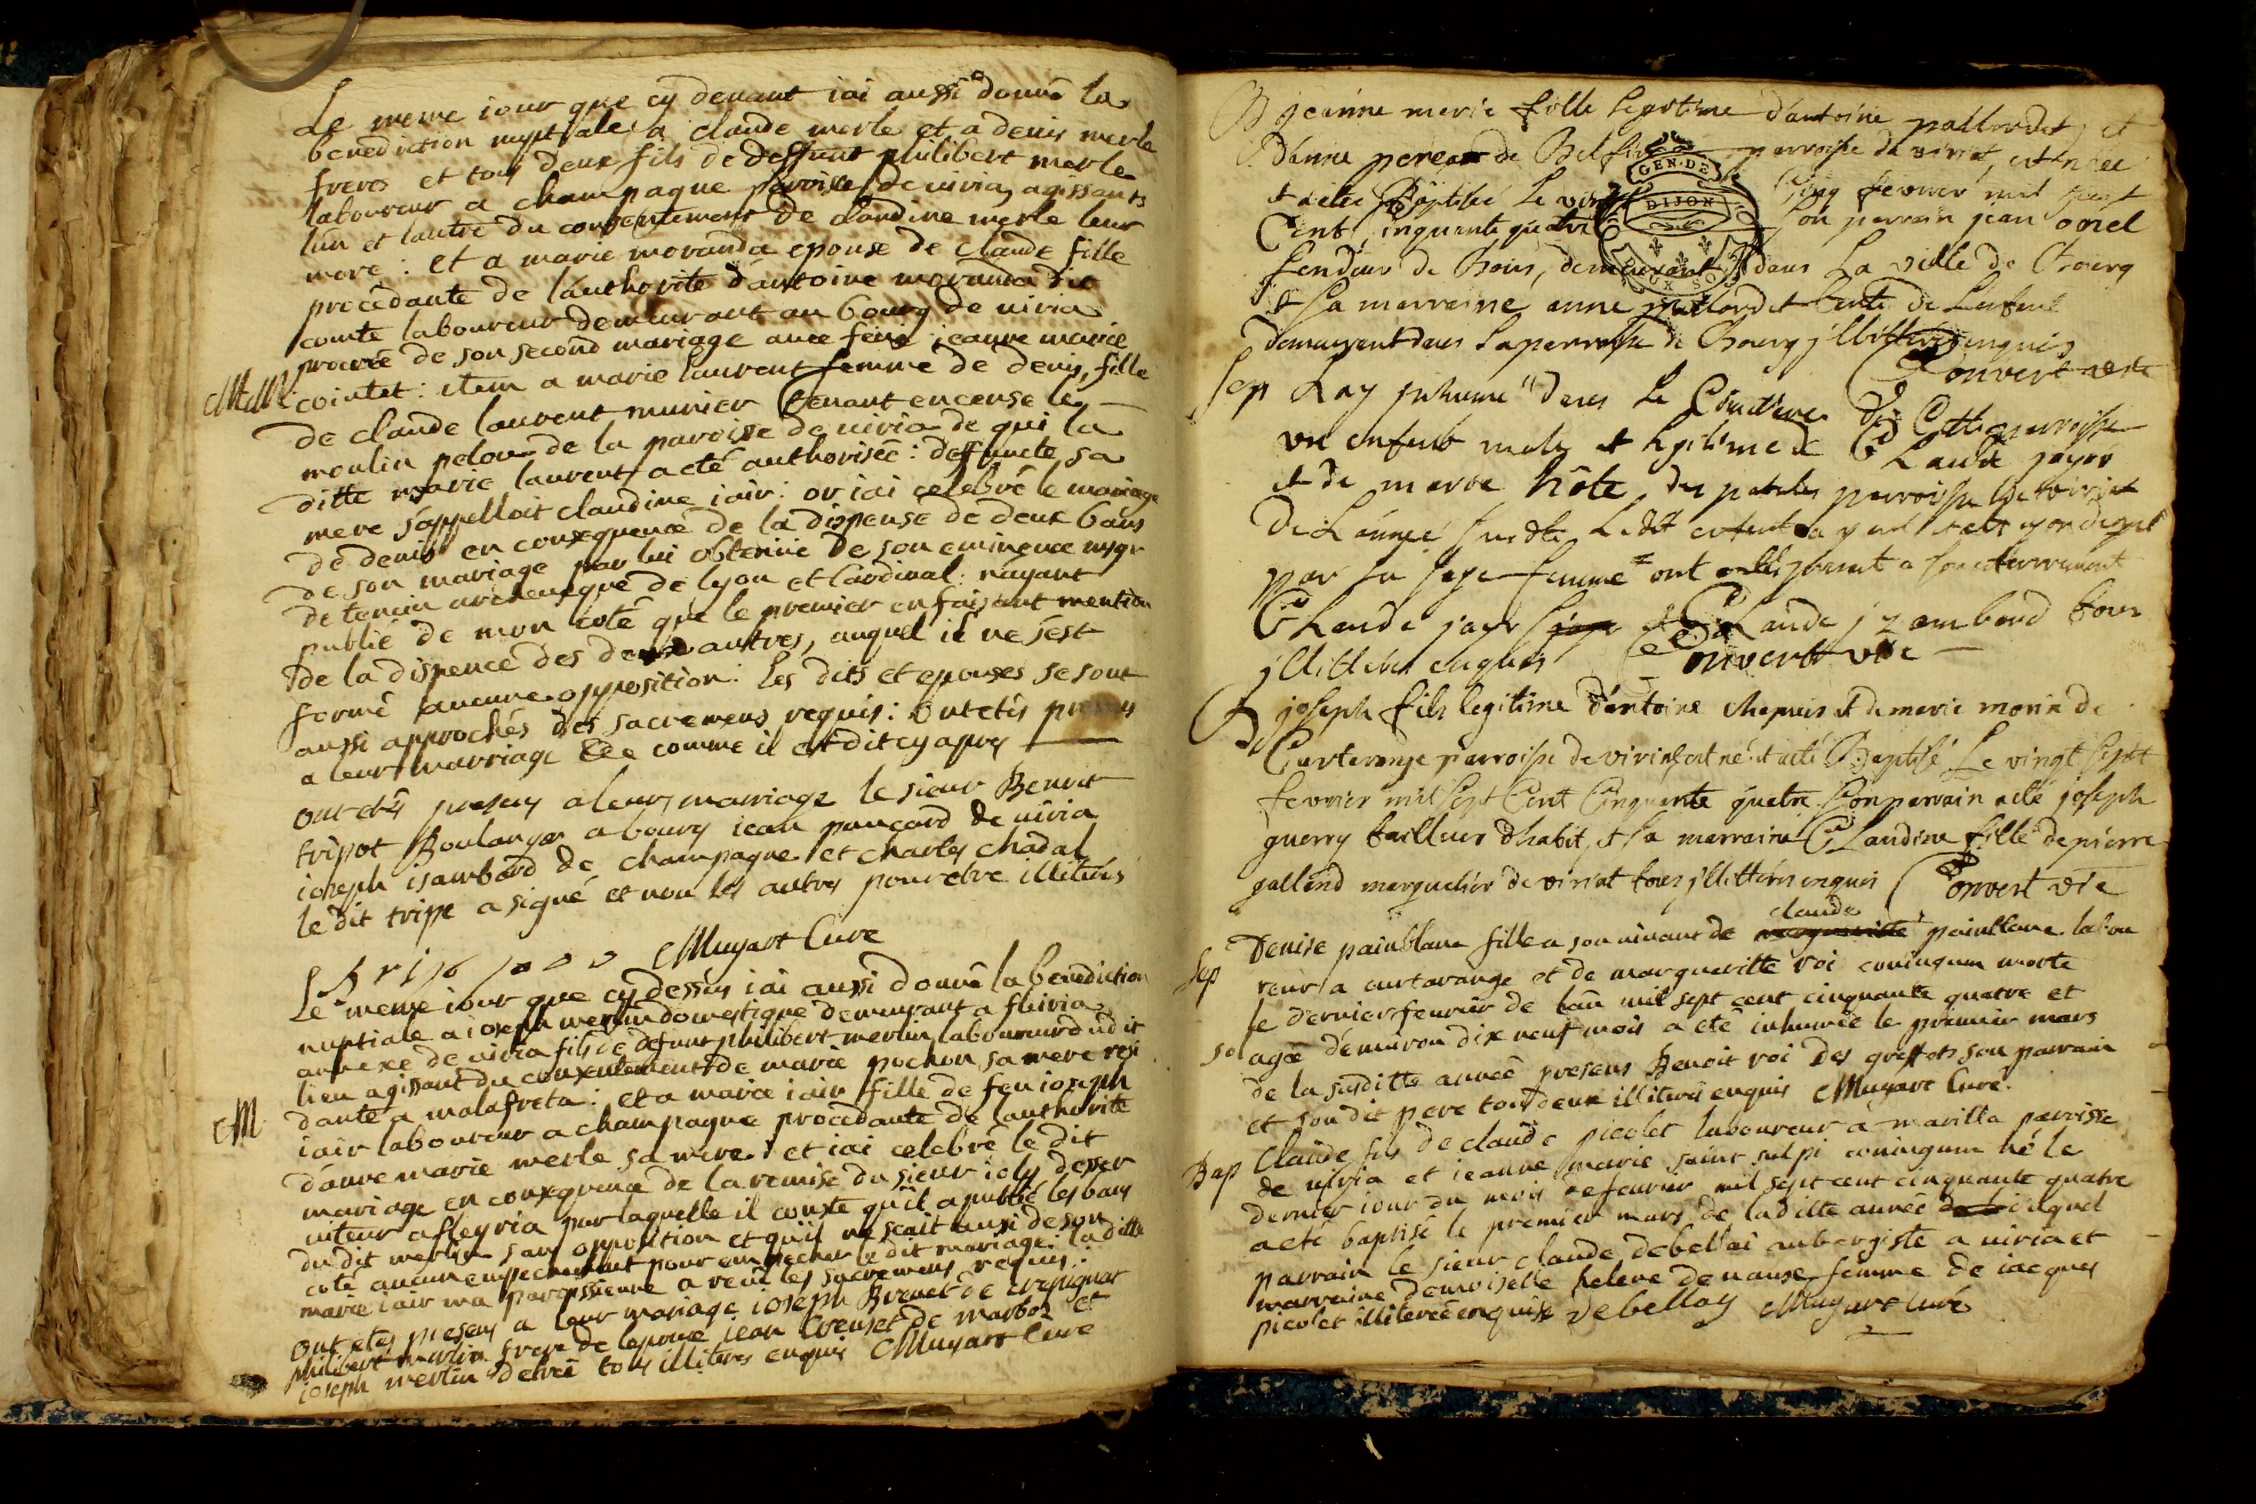 Le meme iour que cy devant iai aussi donné la
benediction nuptiale a claude merle et a denis merle
freres et tous deux fils de deffunt philibert merle
laboureur a champagne paroisse de uiria, agissants
lun et lautre du consentement de claudine merle leur
mere : et a marie moranda epouse de claude fille
procédante de lauthorité dantoine moranda dit
comte laboureur demeurant au bourg de uiria
procreée de son second mariage auec feüe ieanne marie
MM cointet : item a marie laurent femme de denis, fille
de claude laurent munier tenant en cense le
moulin pelou de la paroisse de uiria de qui la
ditte marie laurent a eté authorisée : deffuncte sa
mere sappelloit claudine iair : or iai celebré le mariage
de denis en consequence de la dispense de deux bans
de son mariage par lui obtenüe de son eminence msgr
de tencin archeueque de lyon et Cardinal : nayant
publié de mon coté que le premier en faisant mention
de la dispence des deux autres, auquel il ne s'est
formé aucune opposition. Les dits et epouses se sont
aussi approchés des sacremens requis : ont etés presens
a leur marriage comme il est dit cy apres
ont etés presens a leurs marriage le sieur Benoit
tripot Boulanger a bourg iean poncard de uiria
ioseph isambard de champagne et charles chadal
le dit tripe a signé et non les autres pour etre illiterés
Muyart Curé
Le meme iour que cy dessus iai aussi donné la benediction
nuptiale a ioseph merlin domestique demeurant a fleiria
annexe de uiria fils de defunt philibert merlin laboureur dudit
lieu agissant du consentement de marie pochon sa mere resi
M dante a malafreta : et a marie iair fille de feu ioseph
iair laboureur a champagne procédante de lauthorité
danne marie merle sa mere : et iai celebré le dit
mariage en consequence de la remise du sieur ioly desser
uiteur a fleyria par laquelle il conste qu'il a publié les bans
du dit merlin sans opposition et qu'il ne scait aussi de son
coté aucun empechement pour empecher le dit mariage : la ditte
marie iair ma paroissienne a reçu les sacremens requis :
ont etés presens a leur mariage ioseph Brevet de crepignat
philibert merlin frere de lepoux iean Creuset de marboz et
ioseph merlin detreé tous illiteres enquis Muyart Curé
B jeanne marie fille legitime d'antoine pallordet, et
d'anne pereat de parroisse de viriat, est née
et a eté Baptisé Le vingt Cinq fevrier mil sept
Cent Cinquante quatre Son parrain jean
fendeur de Bois, demeurant dans La ville de Bourg
et sa marraine anne pallordet tente de L'enfant
demeurant dans La parroisse de Bourg jllittérés enquis
Convert vice
Sep Lay jnhumé dans Le Cimetiere de Cette parroisse
un enfant male et legitime de Claude jayr
et de marie hôte des parroisse de viriat
De L'année susdte Ledit enfant
par La sage femme ont etés present a son enterrement
Claude jayr et Claude jzambard tous
jllittérés enquis Convert vice
B joseph fils legitime d'antoine chapuis et de marie morin de
Curteronge parroisse de viriat est né et a eté Baptisé Le vingt Sept
fevrier mil Sept Cent Cinquante quatre Son parrain a eté joseph
guerry tailleur d'habit, et sa marraine Claudine fille de pierre
galland marguelier de viriat tous jllittérés enquis Convert vice
claude
Sep Denise painblanc fille a son uiuant de painblanc labou
reur a curtarange et de marguerite roi coniugum morte
le dernier feurier de lan mil sept cent cinquante quatre et
so agée denuiron dix neuf mois a eté inhumée le premier mars
de la susditte année presens Benoit roi des greffets son parrain
et son dit pere tous deux illiterés enquis Muyart Curé.
Bap Claude fils de claude picolet laboureur a marilla parroisse
de uiria et ieanne marie saint sulpi coniugum né le
dernier iour du mois de feurier mil sept cent cinquante quatre
a eté baptisé le premier mars de laditte année duquel
parrain le sieur claude debellai aubergiste a uiria et
marraine demoiselle helene denause femme de iacques
picolet illiterée enquise Debellay Muyart Curé
GEN. DE
DIJON
DEUX SOLS